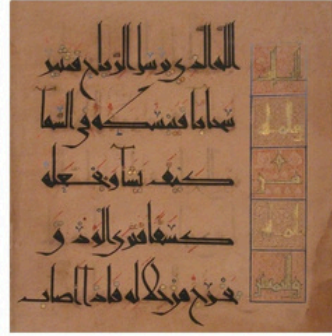 الله الذي يرسل الريح فتثير
سحابا فيبسطه في السما
كيف يشا ويجعله
كسفا فترى الودق ي
خرج من خلله فاذا اصاب